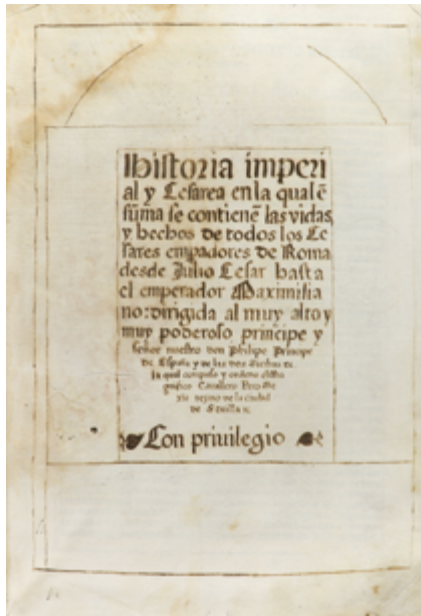 Historia imperi
al y Cesarea en la qual ẽ
sũma se contienẽ las vidas
y hechos de todos los Ce
sares empadores de Roma
desde Julio Cesar hasta
el emperador Maximilia
no: dirigida al muy alto y
muy poderoso principe y
señor nuestro don Philipe Principe
de España y de las dos
la qual compuso y ordeno
Cavallero Pero Me
xia vezino de la ciudad
de Sevilla
Con privilegio